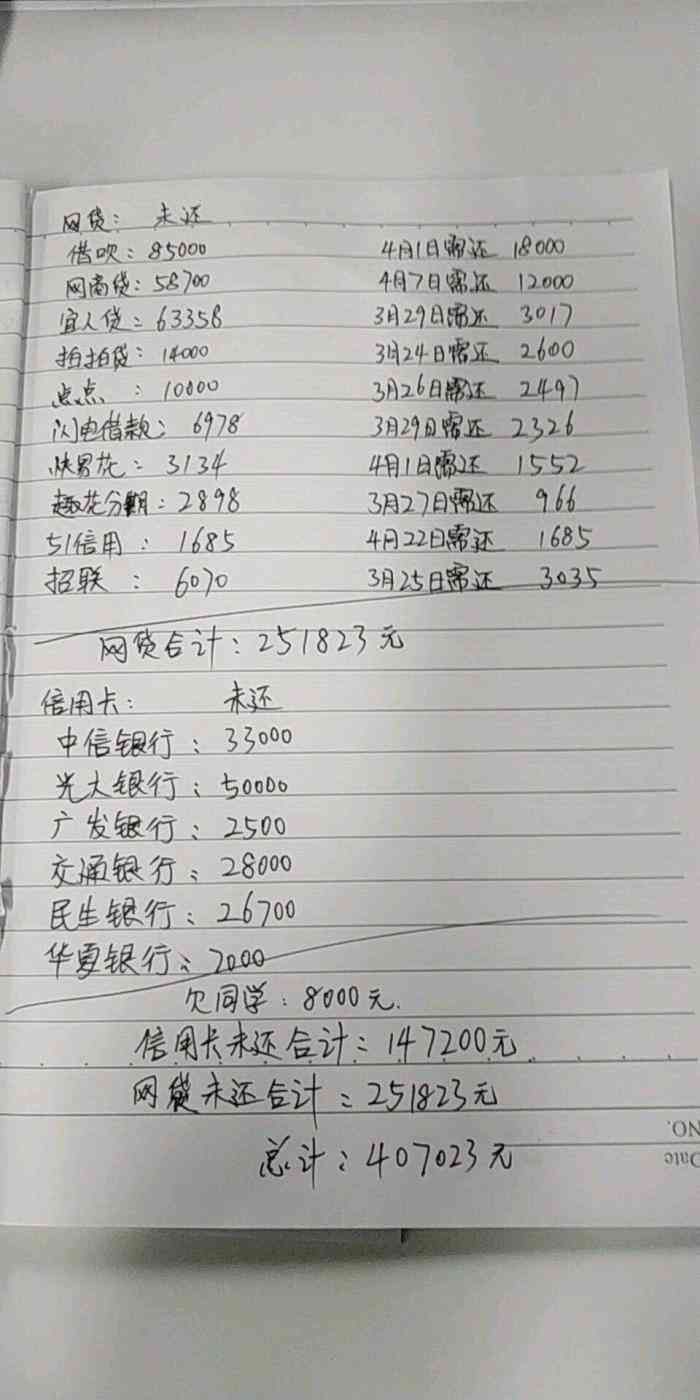 网贷: 未还
借呗: 85000 4月1日需还 18000
网商贷: 58700 4月7日需还 12000
宜人贷: 63358 3月29日需还 3017
拍拍贷: 14000 3月24日需还 2600
点点 : 10000 3月26日需还 2497
闪电借款: 6978 3月29日需还 2326
快易花: 3134 4月1日需还 1552
趣花分期: 2898 3月27日需还 966
51信用: 1685 4月22日需还 1685
招联 : 6070 3月25日需还 3035
网贷合计: 251823元
信用卡: 未还
中信银行: 33000
光大银行: 50000
广发银行: 2500
交通银行: 28000
民生银行: 26700
华夏银行: 7000
欠同学: 8000元.
信用卡未还合计: 147200元
网贷未还合计: 251823元
总计: 407023元
NO.
Date